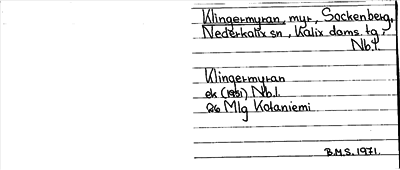 Klingermyran, myr, Sockenberg,
Nederkalix sn, Kalix doms. tg,
Nb.l.
Klingermyran
ek (1951) Nb.l.
26 Mlg Kotaniemi
B.M.S. 1971.